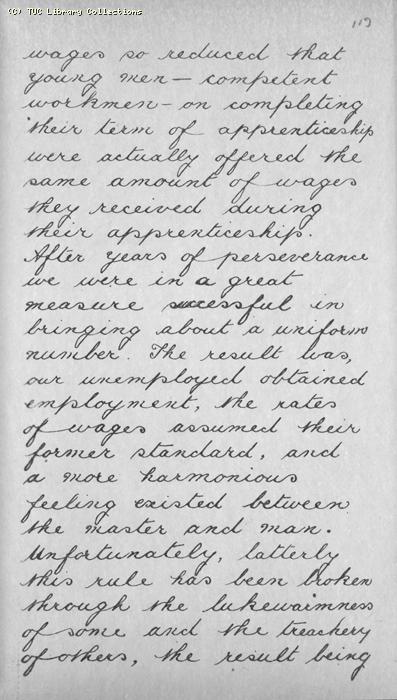 (C) TUC Library Collections
113
wages so reduced that
young men — competent
workmen – on completing
their term of apprenticeship
were actually offered the
same amount of wages
they received during
their apprenticeship.
After years of perseverance
we were in a great
measure successful in
bringing about a uniform
number. The result was,
our unemployed obtained
employment, the rates
of wages assumed their
former standard, and
a more harmonious
feeling existed between
the master and man.
Unfortunately, latterly
this rule has been broken
through the lukewarmness
of some and the treachery
of others, the result being